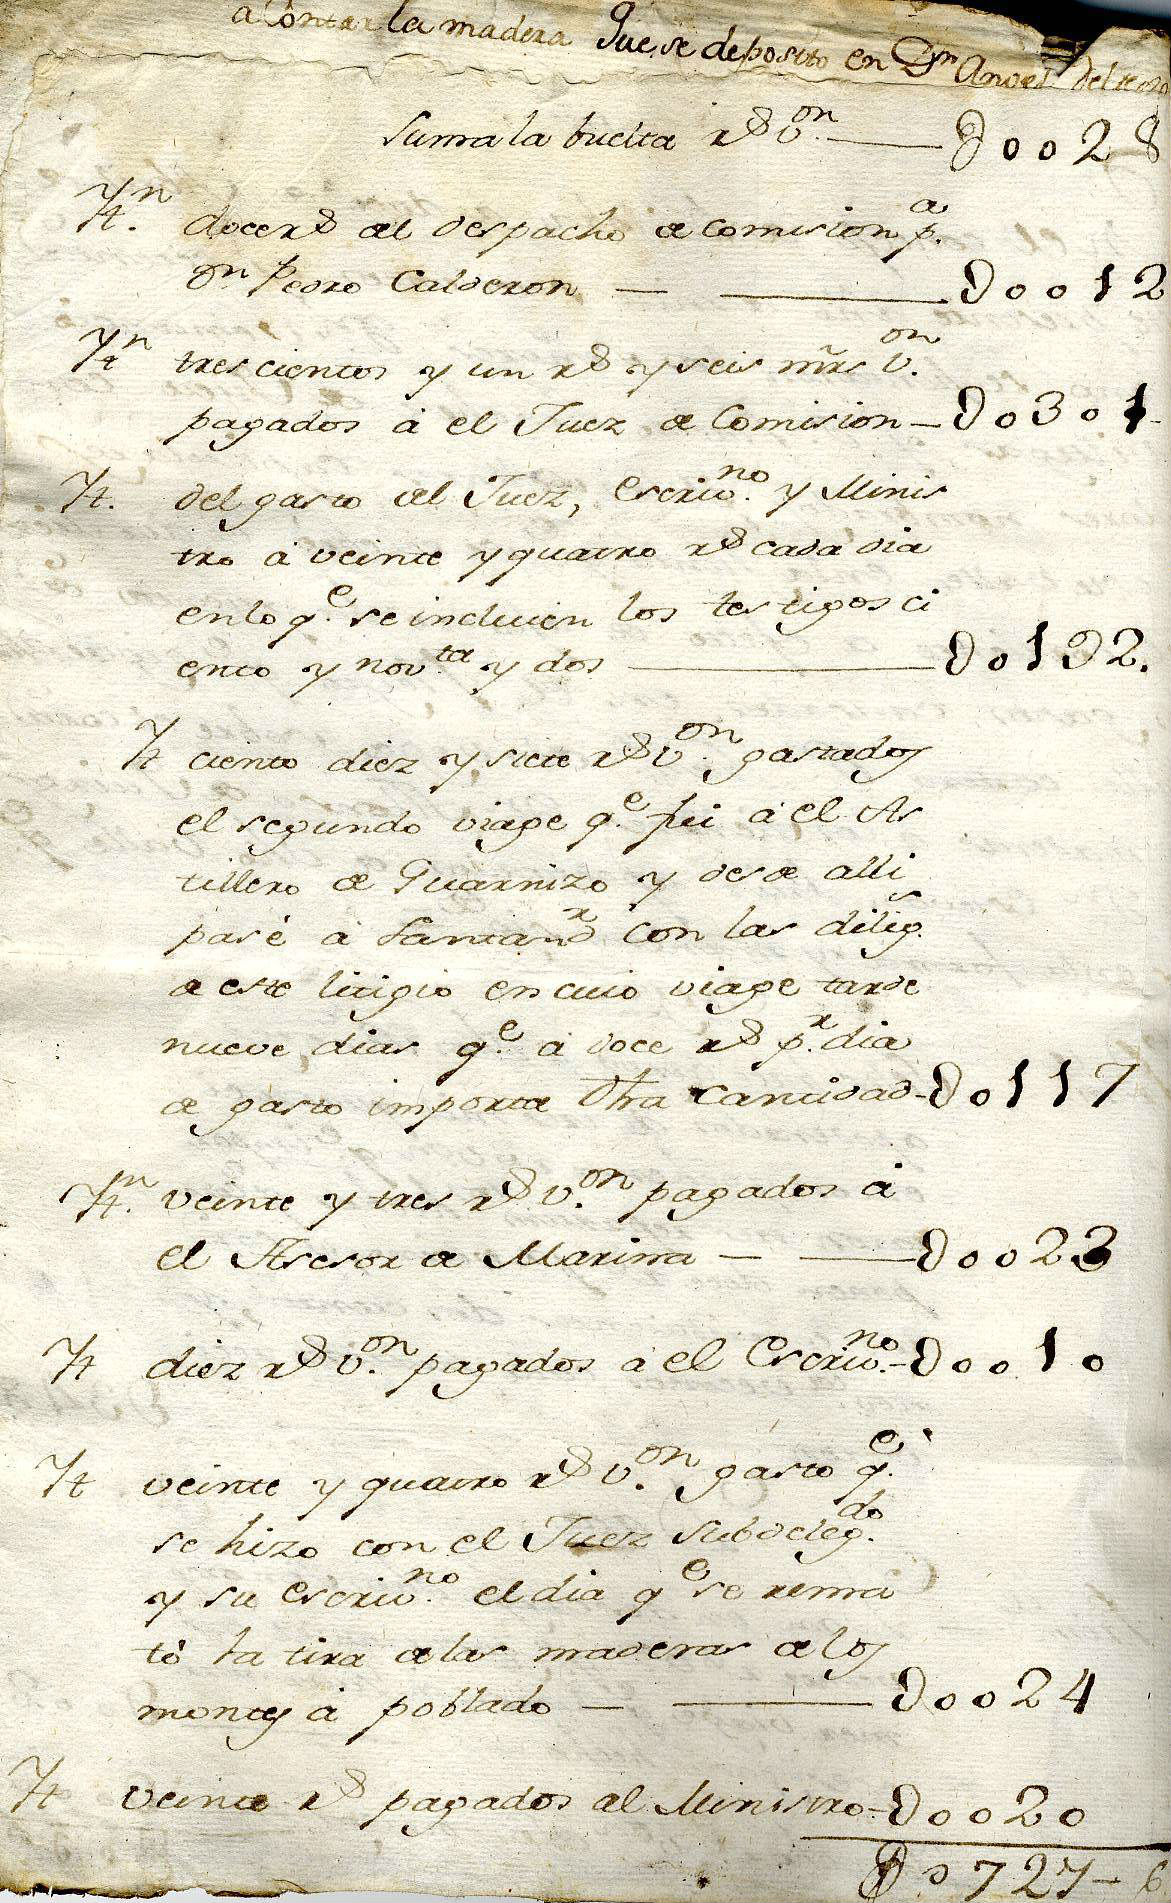 a Contar la madera que se deposito en Dn Angel del
Suma la buelta rs von — 0028
Ytn. doce rs del despacho de comision pa.
Dn Pedro Calderon — 0012
Ytn trescientos y un rs y seis mrs von.
pagados á el Juez de Comision — 0301
Yt. del gasto del Juez, Escrivno. y Minis
tro á veinte y quatro rs cada dia
en lo qe. se incluien los testigos ci
ento y novta y dos — 0192.
Yt ciento diez y siete rs von. gastados
el segundo viage qe. fui á el As
tillero de Guarnizo y desde alli
pasé á Santandr con las diligs.
de este litigio en cuio viage tarde
nueve dias qe. á doce rs pr. dia
de gasto importa dha Cantidad — 0117
Ytn. veinte y tres rs von. pagados á
el Asesor de Marina — 0023
Yt diez rs von. pagados á el Escrivno. — 0010
Yt veinte y quatro rs von. gasto qe.
se hizo con el Juez Subdelegdo.
y su escrivno. el dia qe se rema
tó la tira de las maderas de los
montes á poblado — 0024
Yt veinte rs pagados al Ministro — 0020
0727 — 6